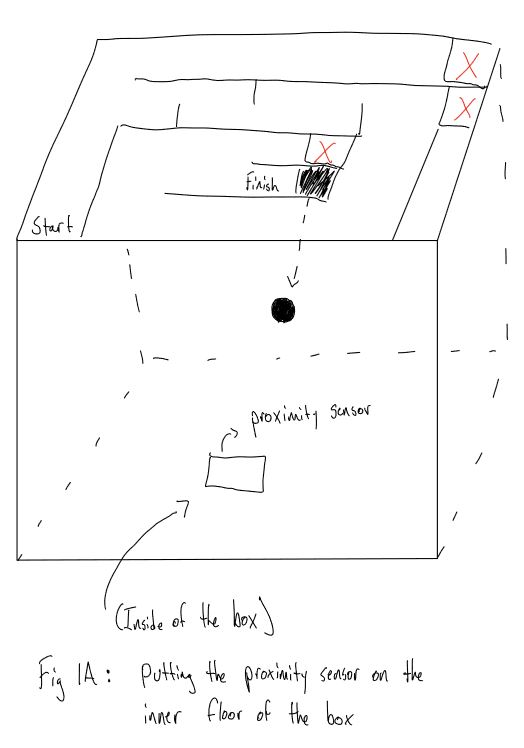 X
X
X
Finish
Start
proximity sensor
(Inside of the box)
Fig 1A: Putting the proximity sensor on the
inner floor of the box